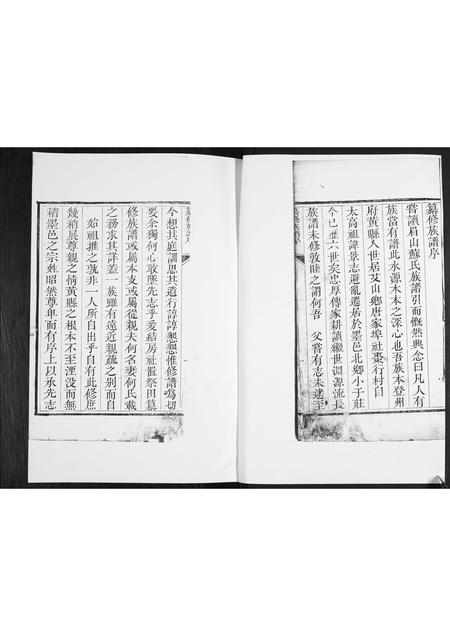 纂修族譜序
嘗讀眉山蘇氏族譜引而慨然興念曰凡人有
族當有譜此水源木本之深心也吾族本登州
府黃縣人世居艾山鄉唐家埠社棗行村自
太高祖諱景志避亂遷居於墨邑北鄉小于莊
今已歷六世矣忠厚傳家耕讀繼世淵源流長
族譜未修敦睦之謂何吾　父嘗有志未逮至
今想其庭訓思其遺行諄諄懇懇惟修譜爲切
要余獨何心敢墜先志乎爰結房社置祭田纂
修族譜或屬本支或屬從親夫何名妻何氏載
之務求其詳蓋一族雖有遠近親疏之別而自
始祖推之孰非一人所自出乎自有此修庶
幾稍展尊親之情黃縣之根本不至湮没而無
稽墨邑之宗姓昭然尊卑而有序上以承先志
纂修族譜序